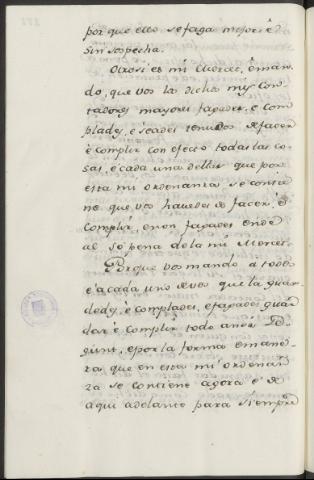 por que ello se faga mejor é
sin sospecha.
Otrosi es mi Merced, é man
do, que vos los dichos mis Con
tadores mayores fagades, é com
plades, é seades tenudos de facer
é complir con efecto todas las co
sas, é cada una dellas que por
esta mi ordenanza se contie
ne que vos havedes de facer, é
complir, é non fagades ende
al só pena de la mi Merced.
Porque vos mando á todos
é á cada uno de vos que la guar
dedes, é complades, é fagades guar
dar é complir todo ansi se
gunt, é por la forma é mane
ra que en esta mi ordenan
za se contiene agora é de
aqui adelante para siempre